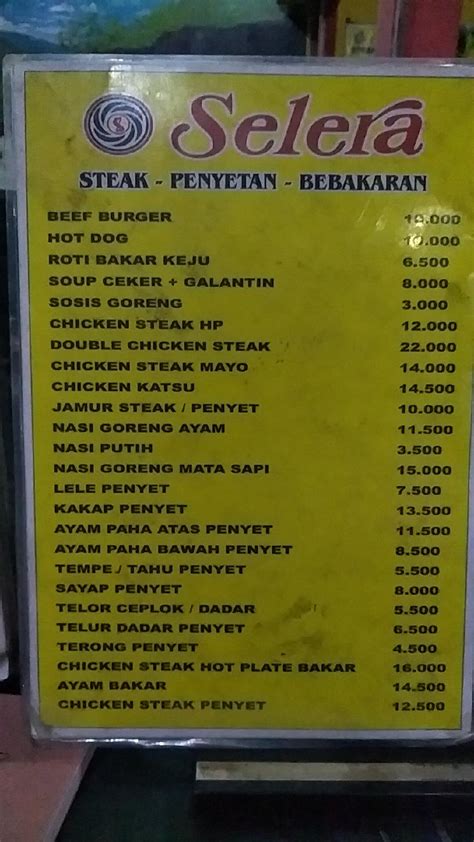 Selera
STEAK - PENYETAN - BEBAKARAN
BEEF BURGER 10.000
HOT DOG 10.000
ROTI BAKAR KEJU 6.500
SOUP CEKER + GALANTIN 8.000
SOSIS GORENG 3.000
CHICKEN STEAK HP 12.000
DOUBLE CHICKEN STEAK 22.000
CHICKEN STEAK MAYO 14.000
CHICKEN KATSU 14.500
JAMUR STEAK / PENYET 10.000
NASI GORENG AYAM 11.500
NASI PUTIH 3.500
NASI GORENG MATA SAPI 15.000
LELE PENYET 7.500
KAKAP PENYET 13.500
AYAM PAHA ATAS PENYET 11.500
AYAM PAHA BAWAH PENYET 8.500
TEMPE / TAHU PENYET 5.500
SAYAP PENYET 8.000
TELOR CEPLOK / DADAR 5.500
TELUR DADAR PENYET 6.500
TERONG PENYET 4.500
CHICKEN STEAK HOT PLATE BAKAR 16.000
AYAM BAKAR 14.500
CHICKEN STEAK PENYET 12.500